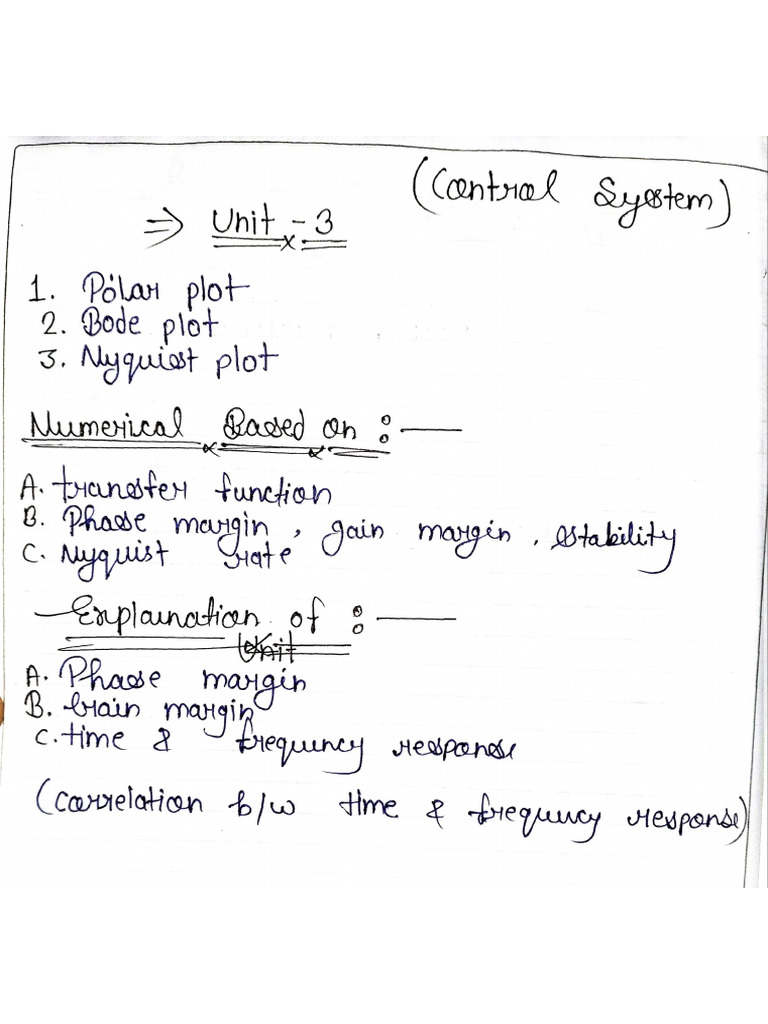 (Control System)
⇒ Unit - 3
1. Polar plot
2. Bode plot
3. Nyquist plot
Numerical Based on :—
A. transfer function
B. Phase margin, gain margin, stability
C. Nyquist rate
Explaination of :—
Unit
A. Phase margin
B. Gain margin
C. time & frequncy response
(correlation b/w time & frequncy response)